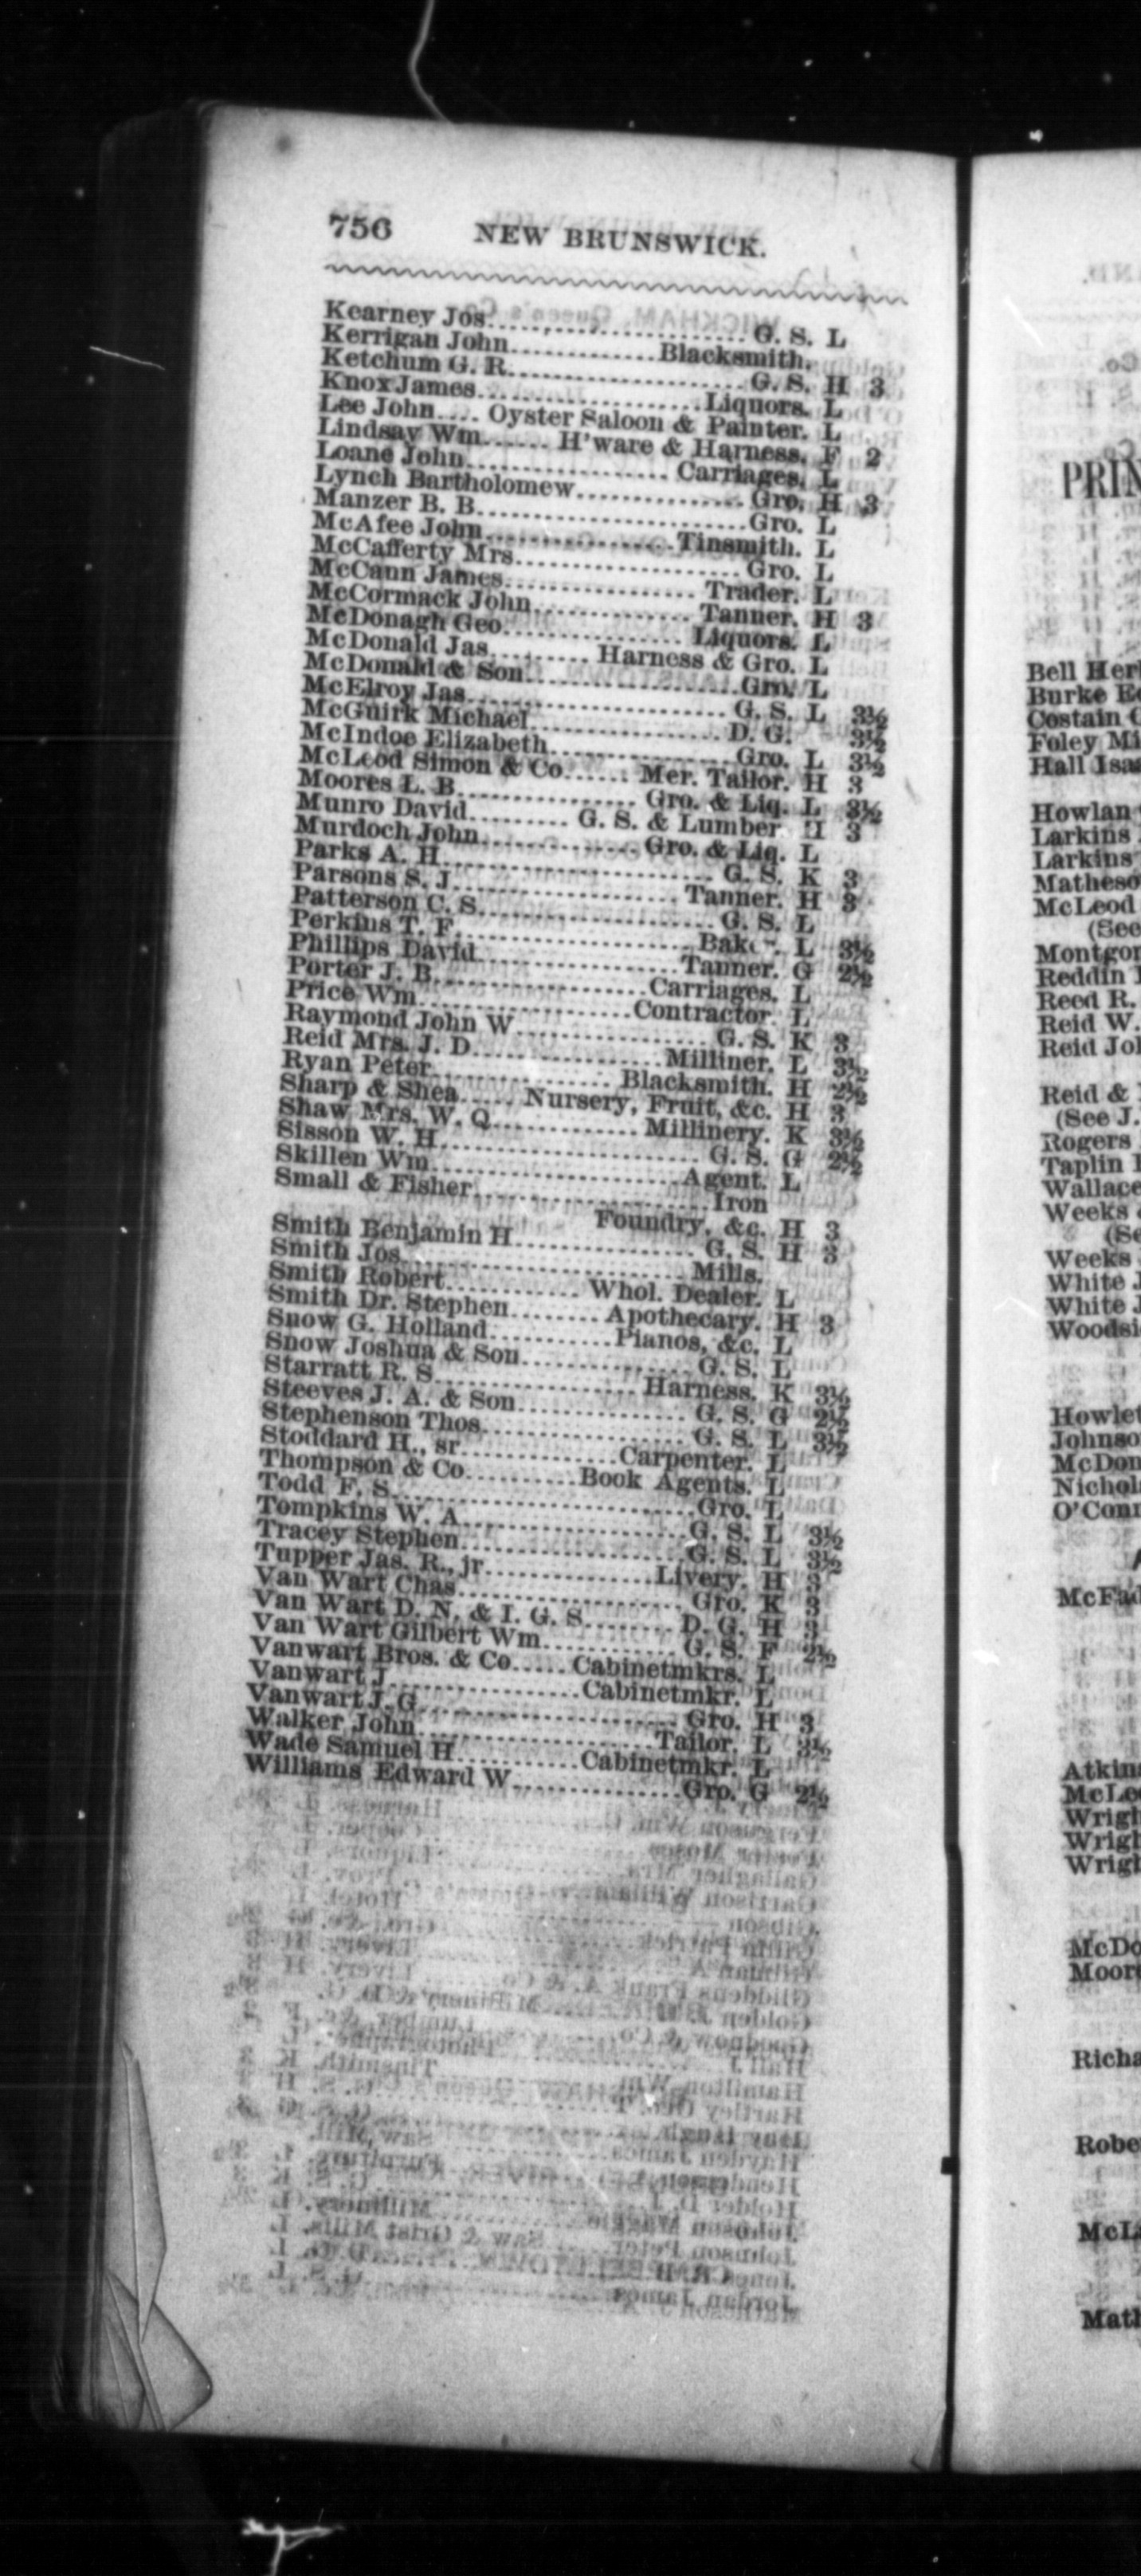 756 NEW BRUNSWICK.
Kearney Jos........ G. S. L
Kerrigan John........ Blacksmith.
Ketchum G. R........ G. S. H 3
Knox James........ Liquors. L
Lee John.... Oyster Saloon & Painter. L
Lindsay Wm...... H'ware & Harness. F 2
Loane John........ Carriages. L
Lynch Bartholomew........ Gro. H 3
Manzer B. B........ Gro. L
McAfee John........ Tinsmith. L
McCafferty Mrs........ Gro. L
McCann James........ Trader. L
McCormack John........ Tanner. H 3
McDonagh Geo........ Liquors. L
McDonald Jas........ Harness & Gro. L
McDonald & Son........ Gro. L
McElroy Jas........ G. S. L 3½
McGuirk Michael........ D. G. 3½
McIndoe Elizabeth........ Gro. L 3½
McLeod Simon & Co...... Mer. Tailor. H 3
Moores L. B........ Gro. & Liq. L 3½
Munro David........ G. S. & Lumber. H 3
Murdoch John........ Gro. & Liq. L
Parks A. H........ G. S. K 3
Parsons S. J........ Tanner. H 3
Patterson C. S........ G. S. L
Perkins T. F........ Baker. L 3½
Phillips David........ Tanner. G 2½
Porter J. B........ Carriages. L
Price Wm........ Contractor. L
Raymond John W........ G. S. K 3
Reid Mrs. J. D........ Milliner. L 3½
Ryan Peter........ Blacksmith. H 2½
Sharp & Shea...... Nursery, Fruit, &c. H 3
Shaw Mrs. W. Q........ Millinery. K 3½
Sisson W. H........ G. S. G 2½
Skillen Wm........ Agent. L
Small & Fisher........ Iron
Foundry, &c. H 3
Smith Benjamin H........ G. S. H 3
Smith Jos........ Mills.
Smith Robert........ Whol. Dealer. L
Smith Dr. Stephen........ Apothecary. H 3
Snow G. Holland........ Pianos, &c. L
Snow Joshua & Son........ G. S. L
Starratt R. S........ Harness. K 3½
Steeves J. A. & Son........ G. S. G 2½
Stephenson Thos........ G. S. L 3½
Stoddard H., sr........ Carpenter. L
Thompson & Co........ Book Agents. L
Todd F. S........ Gro. L
Tompkins W. A........ G. S. L 3½
Tracey Stephen........ G. S. L 3½
Tupper Jas. R., jr........ Livery. H 3
Van Wart Chas........ Gro. K 3
Van Wart D. N. & I. G. S........ D. G. H 3
Van Wart Gilbert Wm........ G. S. F 2½
Vanwart Bros. & Co..... Cabinetmkrs. L
Vanwart J........ Cabinetmkr. L
Vanwart J. G........ Gro. H 3
Walker John........ Tailor. L 3½
Wade Samuel H........ Cabinetmkr. L
Williams Edward W........ Gro. G 2½
PRIN
Bell Her
Burke E
Costain
Foley Mi
Hall Isa
Howlan
Larkins
Larkins
Matheso
McLeod
(See
Montgor
Reddin
Reed R.
Reid W.
Reid Jo
Reid &
(See J.
Rogers
Taplin
Wallace
Weeks
(Se
Weeks
White J
White J
Woodsi
Howlet
Johnso
McDon
Nichols
O'Con
McFad
Atkins
McLe
Wrigh
Wrigh
Wrigh
McDo
Moor
Richa
Robe
McL
Matl